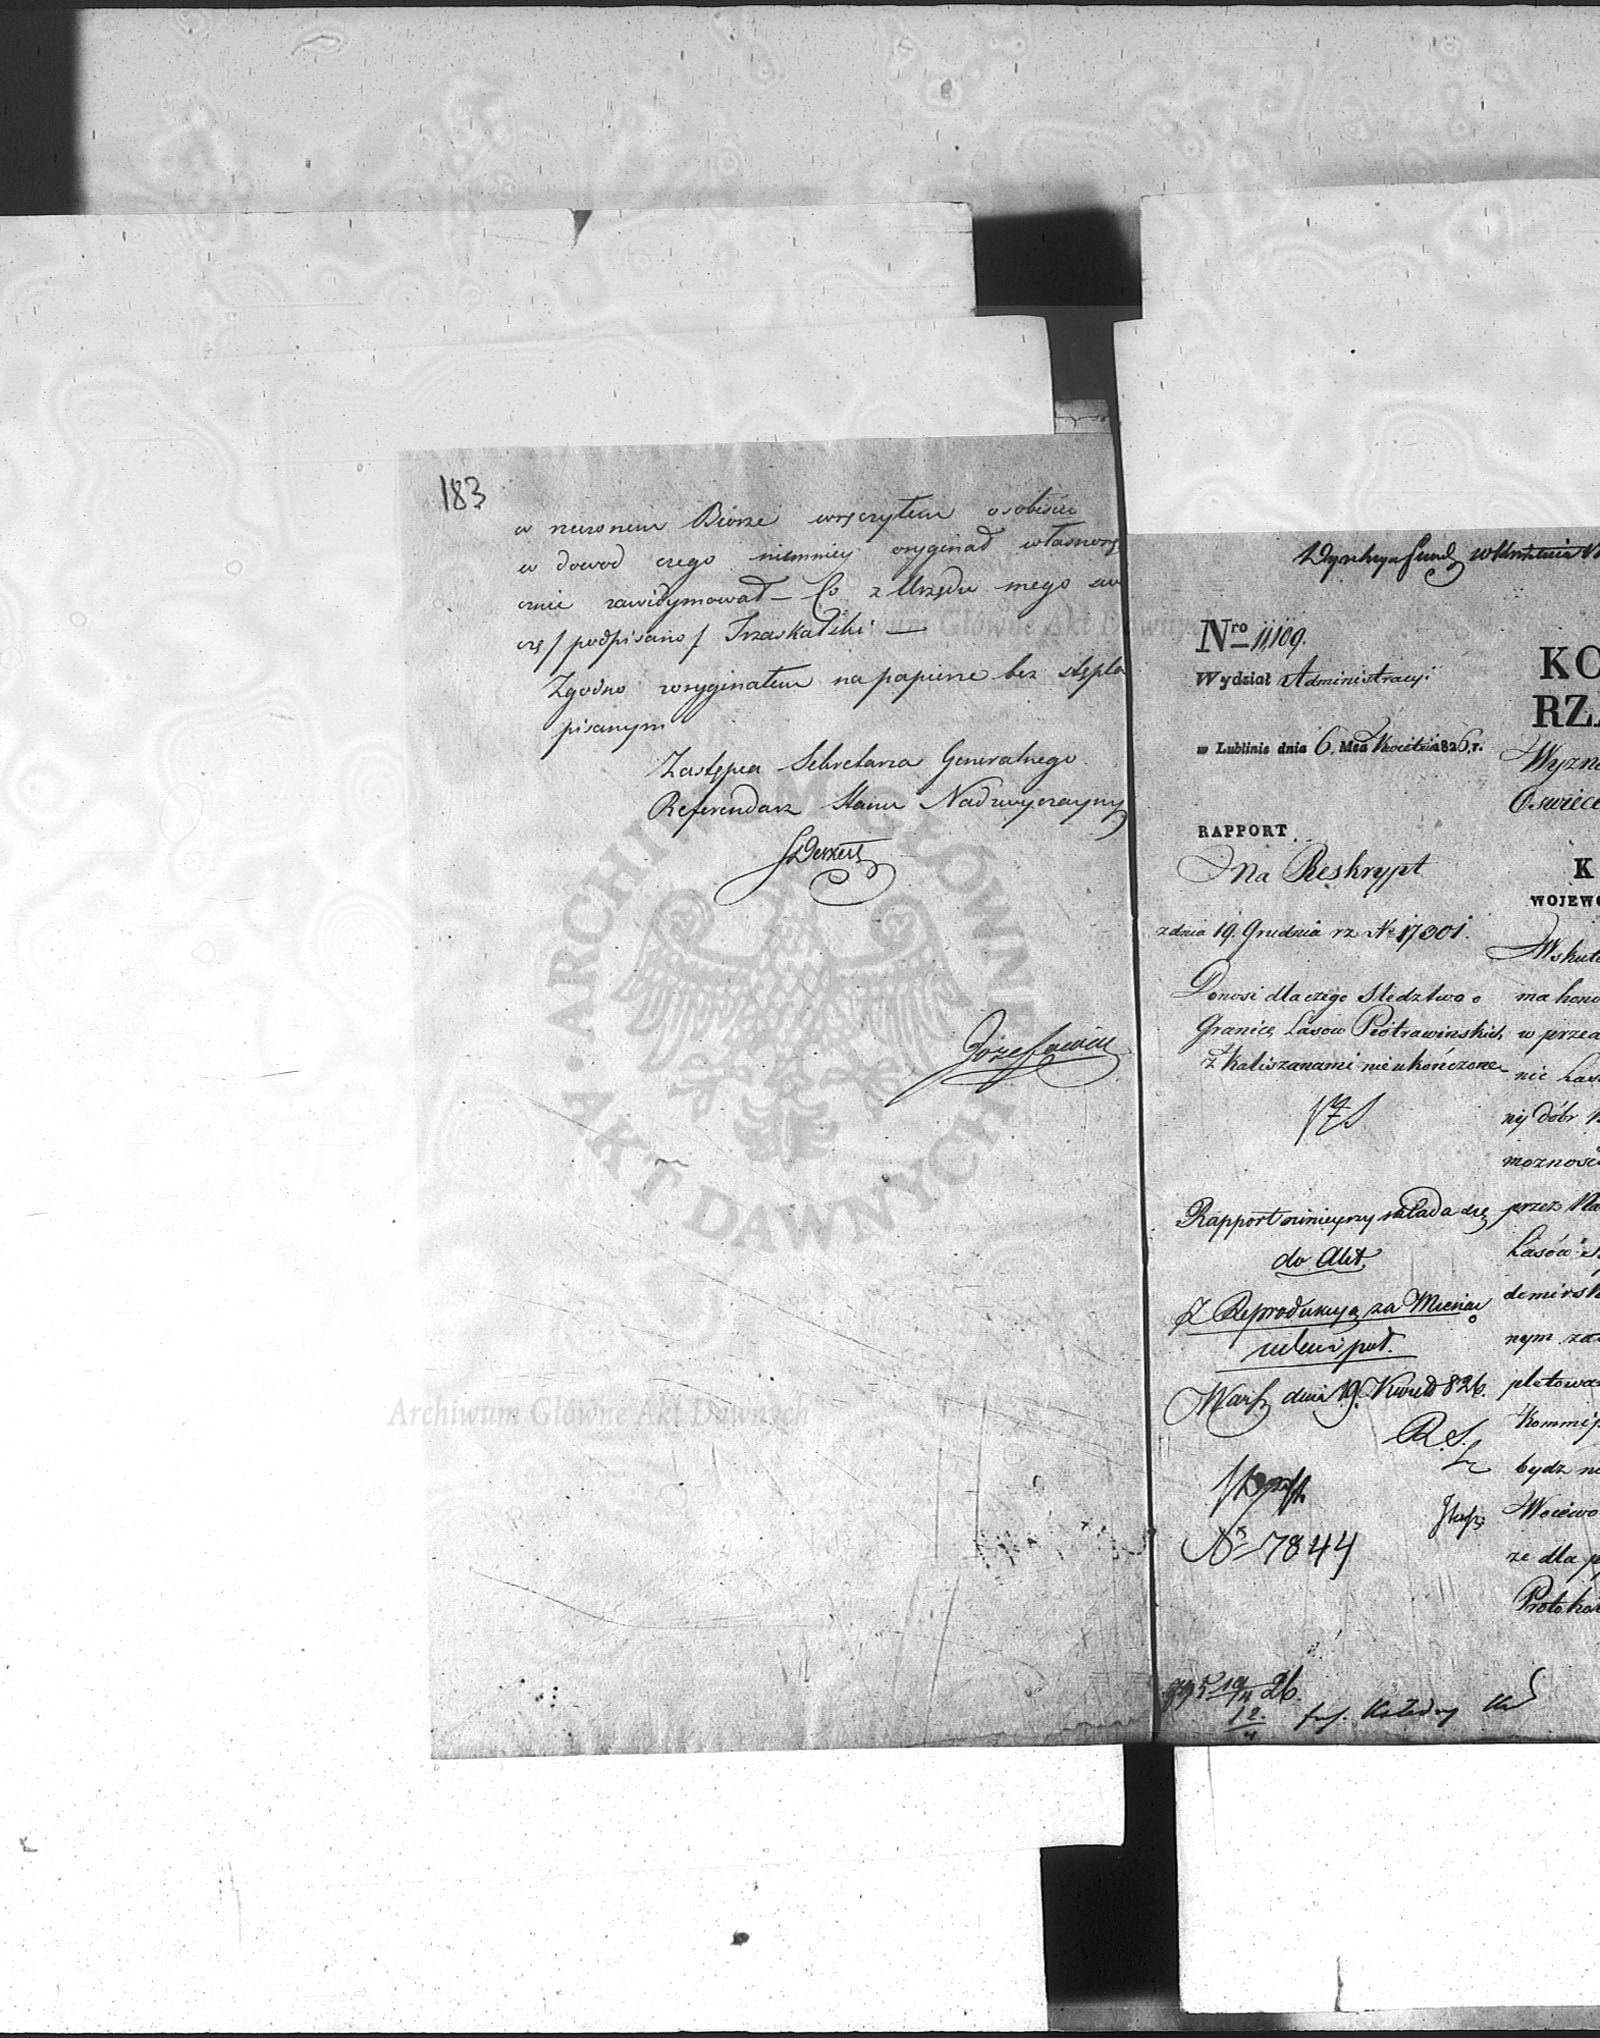 183
w rzeczonem Biorze wręczyłem osobiście
w dowod czego niemniey oryginał własnorę
cznie zawidymował – Co z Urzędu mego
czę / podpisano / Trzaskalski —
Zgodno z oryginałem na papierze bez stępla
pisanym
Zastępca Sekretarza Generalnego
Referendarz Stanu Nadzwyczayny
Józefowicz
Archiwum Główne Akt Dawnych
ARCHIWUM GŁÓWNE AKT DAWNYCH
Nro 11,109.
Wydział Administracyi
w Lublinie dnia 6. Mca Kwietnia 1826. r.
RAPPORT
Na Reskrypt
z dnia 19. Grudnia rz Nr 17301.
Donosi dlaczego Sledztwo o
Granicę Lasow Piotrawinskich
z Kaliszanami nieukończone
Rapport ninieyszy składa się
do Akt.
Z Reprodukcyą za Miesiąc
Warsz dnia 19. Kwiet 826.
R. S.
No 7844
KO
RZĄ
Wyzna
Oswiece
K
WOJEWÓ
Wskute
ma hono
w przed
nic Las
nij dóbr
mozności
przez Na
Lasów
domirsk
nym za
pletowa
Kommis
bydz nie
Woiewo
ze dla p
Protokół